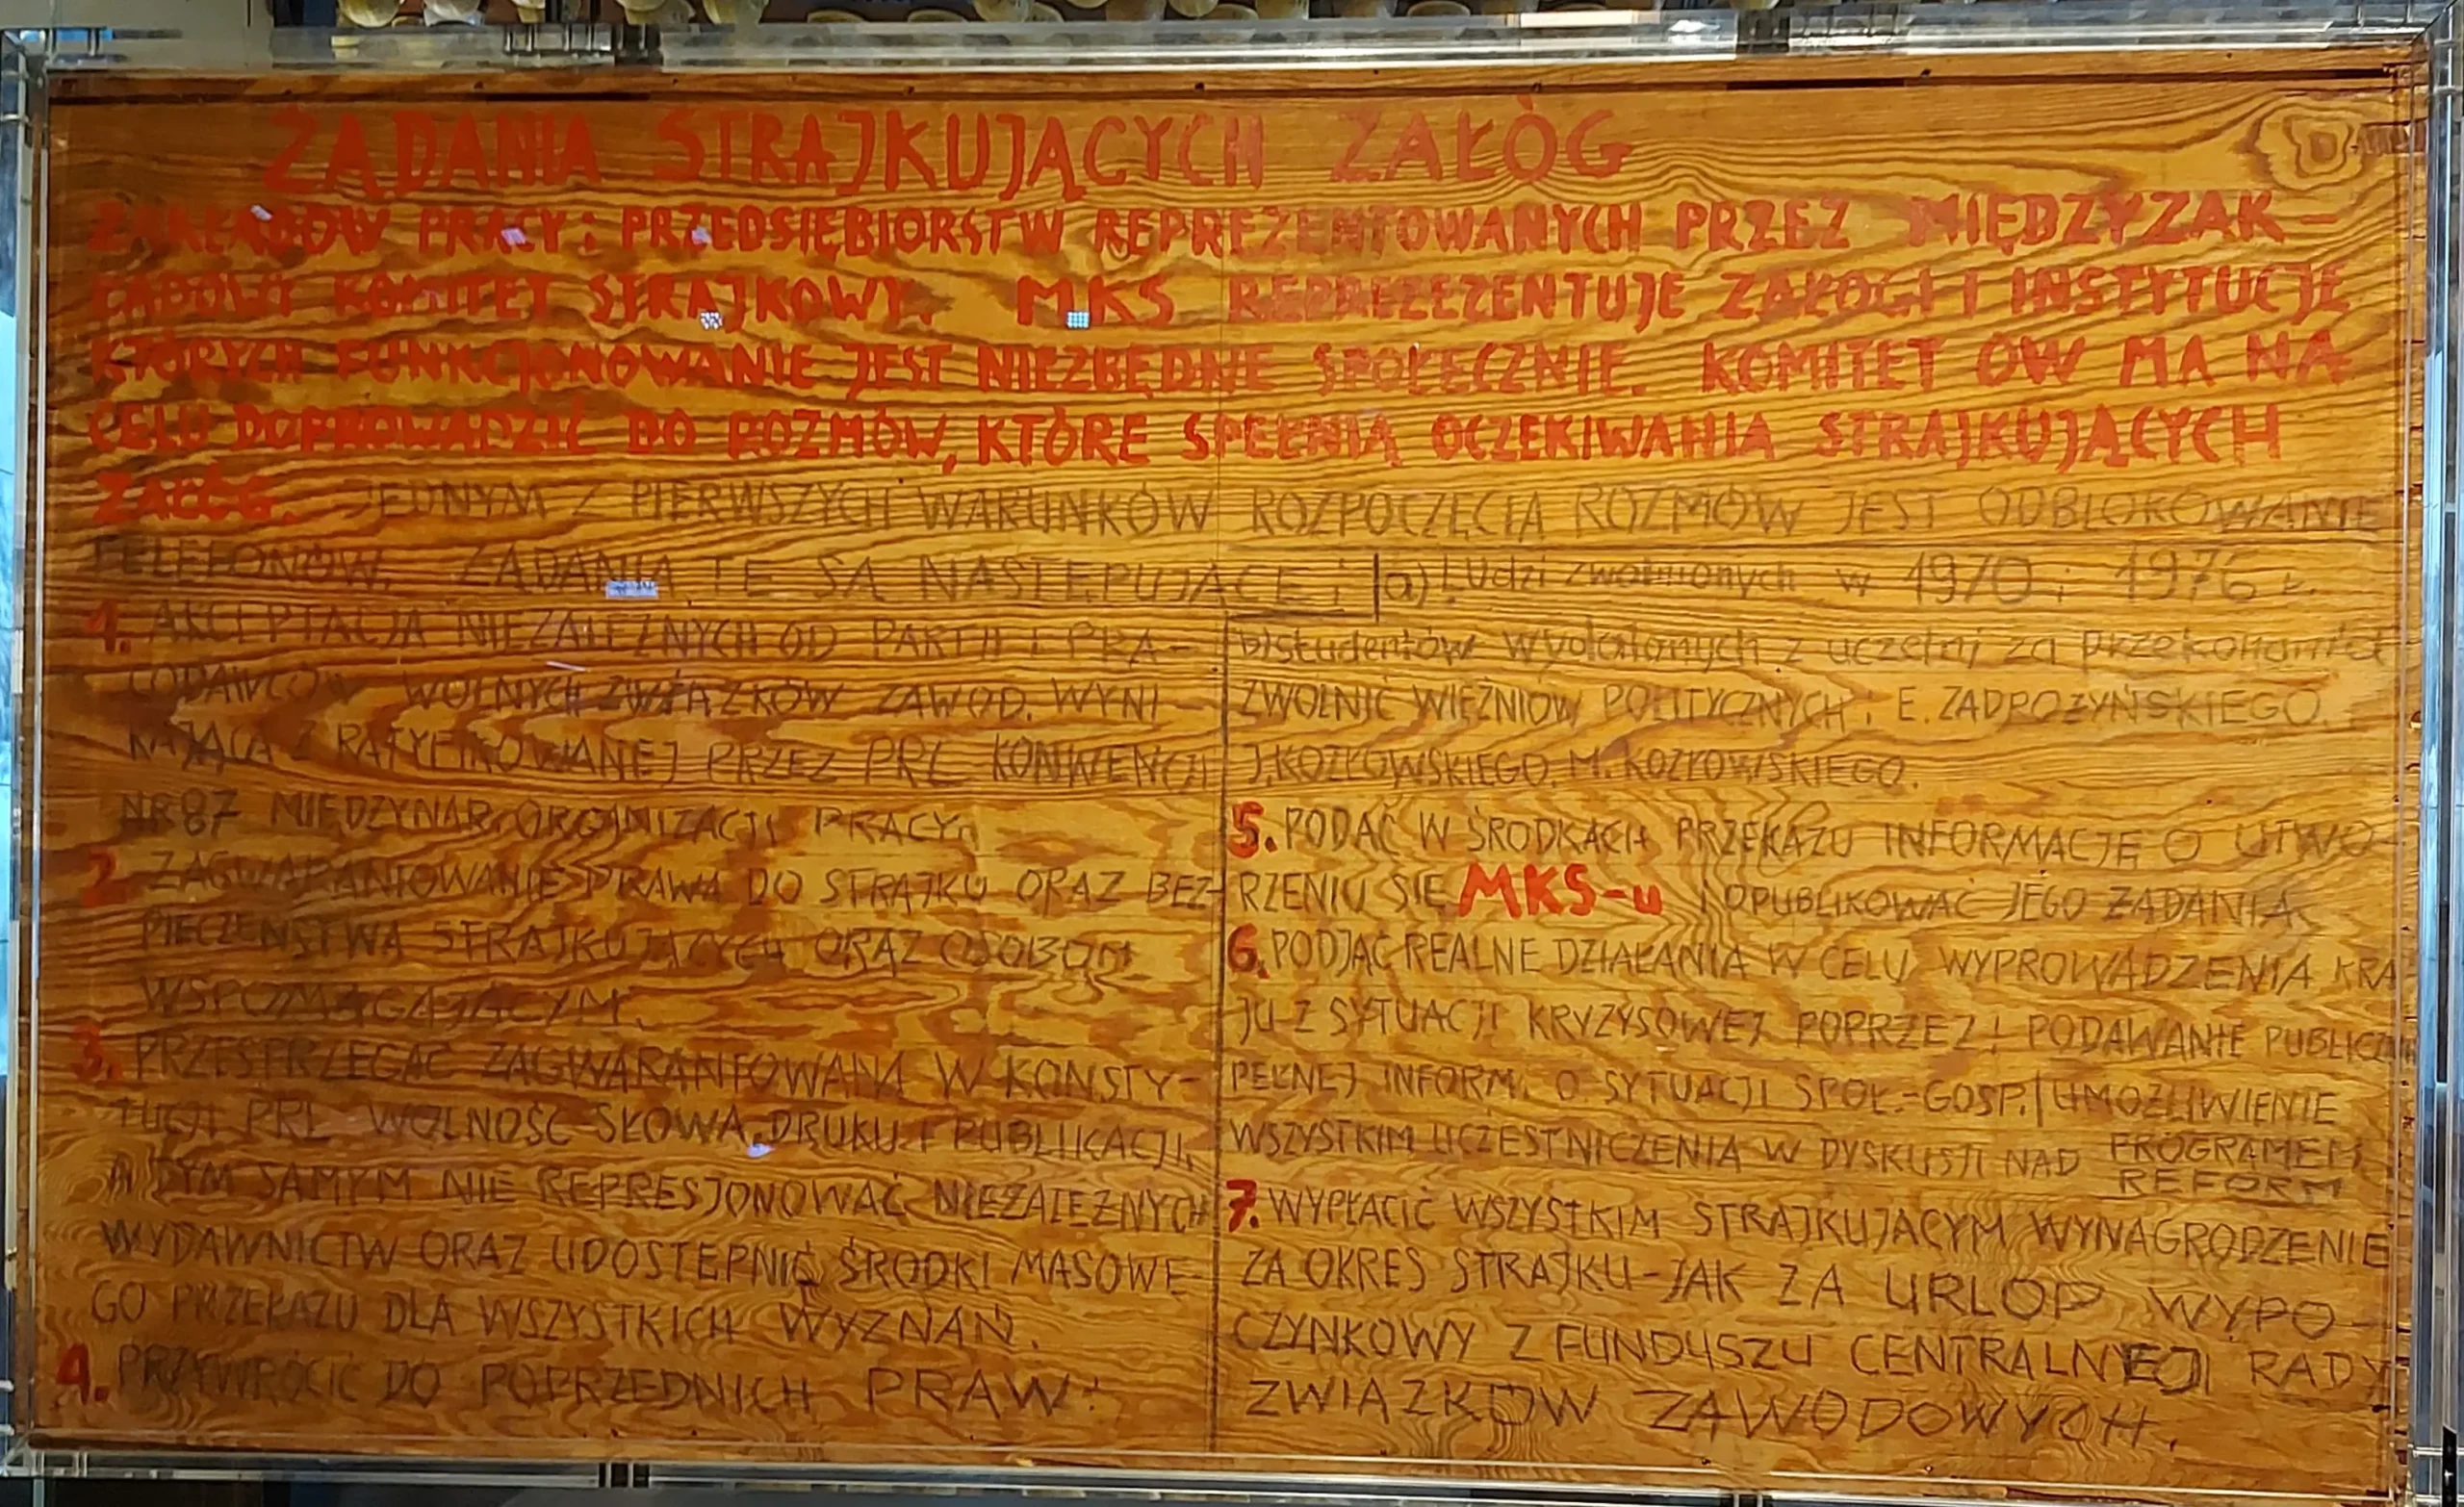 ŻĄDANIA STRAJKUJĄCYCH ZAŁÓG
ZAKŁADÓW PRACY i PRZEDSIĘBIORSTW REPREZENTOWANYCH PRZEZ MIĘDZYZAK-
ŁADOWY KOMITET STRAJKOWY. MKS REPREZEZENTUJE ZAŁOGI I INSTYTUCJE
KTÓRYCH FUNKCJONOWANIE JEST NIEZBĘDNE SPOŁECZNIE. KOMITET ÓW MA NA
CELU DOPROWADZIĆ DO ROZMÓW, KTÓRE SPEŁNIĄ OCZEKIWANIA STRAJKUJĄCYCH
ZAŁÓG. JEDNYM Z PIERWSZYCH WARUNKÓW ROZPOCZĘCIA ROZMÓW JEST ODBLOKOWANIE
TELEFONÓW. ŻĄDANIA TE SĄ NASTĘPUJĄCE:
1. AKCEPTACJA NIEZALEŻNYCH OD PARTII I PRA-
CODAWCÓW WOLNYCH ZWIĄZKÓW ZAWOD. WYNI-
KAJĄCA Z RATYFIKOWANEJ PRZEZ PRL KONWENCJI
NR 87 MIĘDZYNAR. ORGANIZACJI PRACY.
2. ZAGWARANTOWANIE PRAWA DO STRAJKU ORAZ BEZ-
PIECZEŃSTWA STRAJKUJĄCYCH ORAZ OSOBOM
WSPOMAGAJĄCYM.
3. PRZESTRZEGAĆ ZAGWARANTOWANĄ W KONSTY-
TUCJI PRL WOLNOŚĆ SŁOWA, DRUKU I PUBLIKACJI,
A TYM SAMYM NIE REPRESJONOWAĆ NIEZALEŻNYCH
WYDAWNICTW ORAZ UDOSTĘPNIĆ ŚRODKI MASOWE-
GO PRZEKAZU DLA WSZYSTKICH WYZNAŃ.
4. PRZYWRÓCIĆ DO POPRZEDNICH PRAW:
a) Ludzi zwolnionych w 1970 i 1976 r.
b) studentów wydalonych z uczelni za przekonania
ZWOLNIĆ WIĘŹNIÓW POLITYCZNYCH: E. ZADROŻYŃSKIEGO.
J. KOZŁOWSKIEGO. M. KOZŁOWSKIEGO.
5. PODAĆ W ŚRODKACH PRZEKAZU INFORMACJĘ O UTWO-
RZENIU SIĘ MKS-u I OPUBLIKOWAĆ JEGO ŻĄDANIA.
6. PODJĄĆ REALNE DZIAŁANIA W CELU WYPROWADZENIA KRA
JU Z SYTUACJI KRYZYSOWEJ POPRZEZ: PODAWANIE PUBLICZN
PEŁNEJ INFORM. O SYTUACJI SPOŁ.-GOSP./UMOŻLIWIENIE
WSZYSTKIM UCZESTNICZENIA W DYSKUSJI NAD PROGRAMEM
REFORM
7. WYPŁACIĆ WSZYSTKIM STRAJKUJĄCYM WYNAGRODZENIE
ZA OKRES STRAJKU-JAK ZA URLOP WYPO-
CZYNKOWY Z FUNDUSZU CENTRALNEJ RADY
ZWIĄZKÓW ZAWODOWYCH.